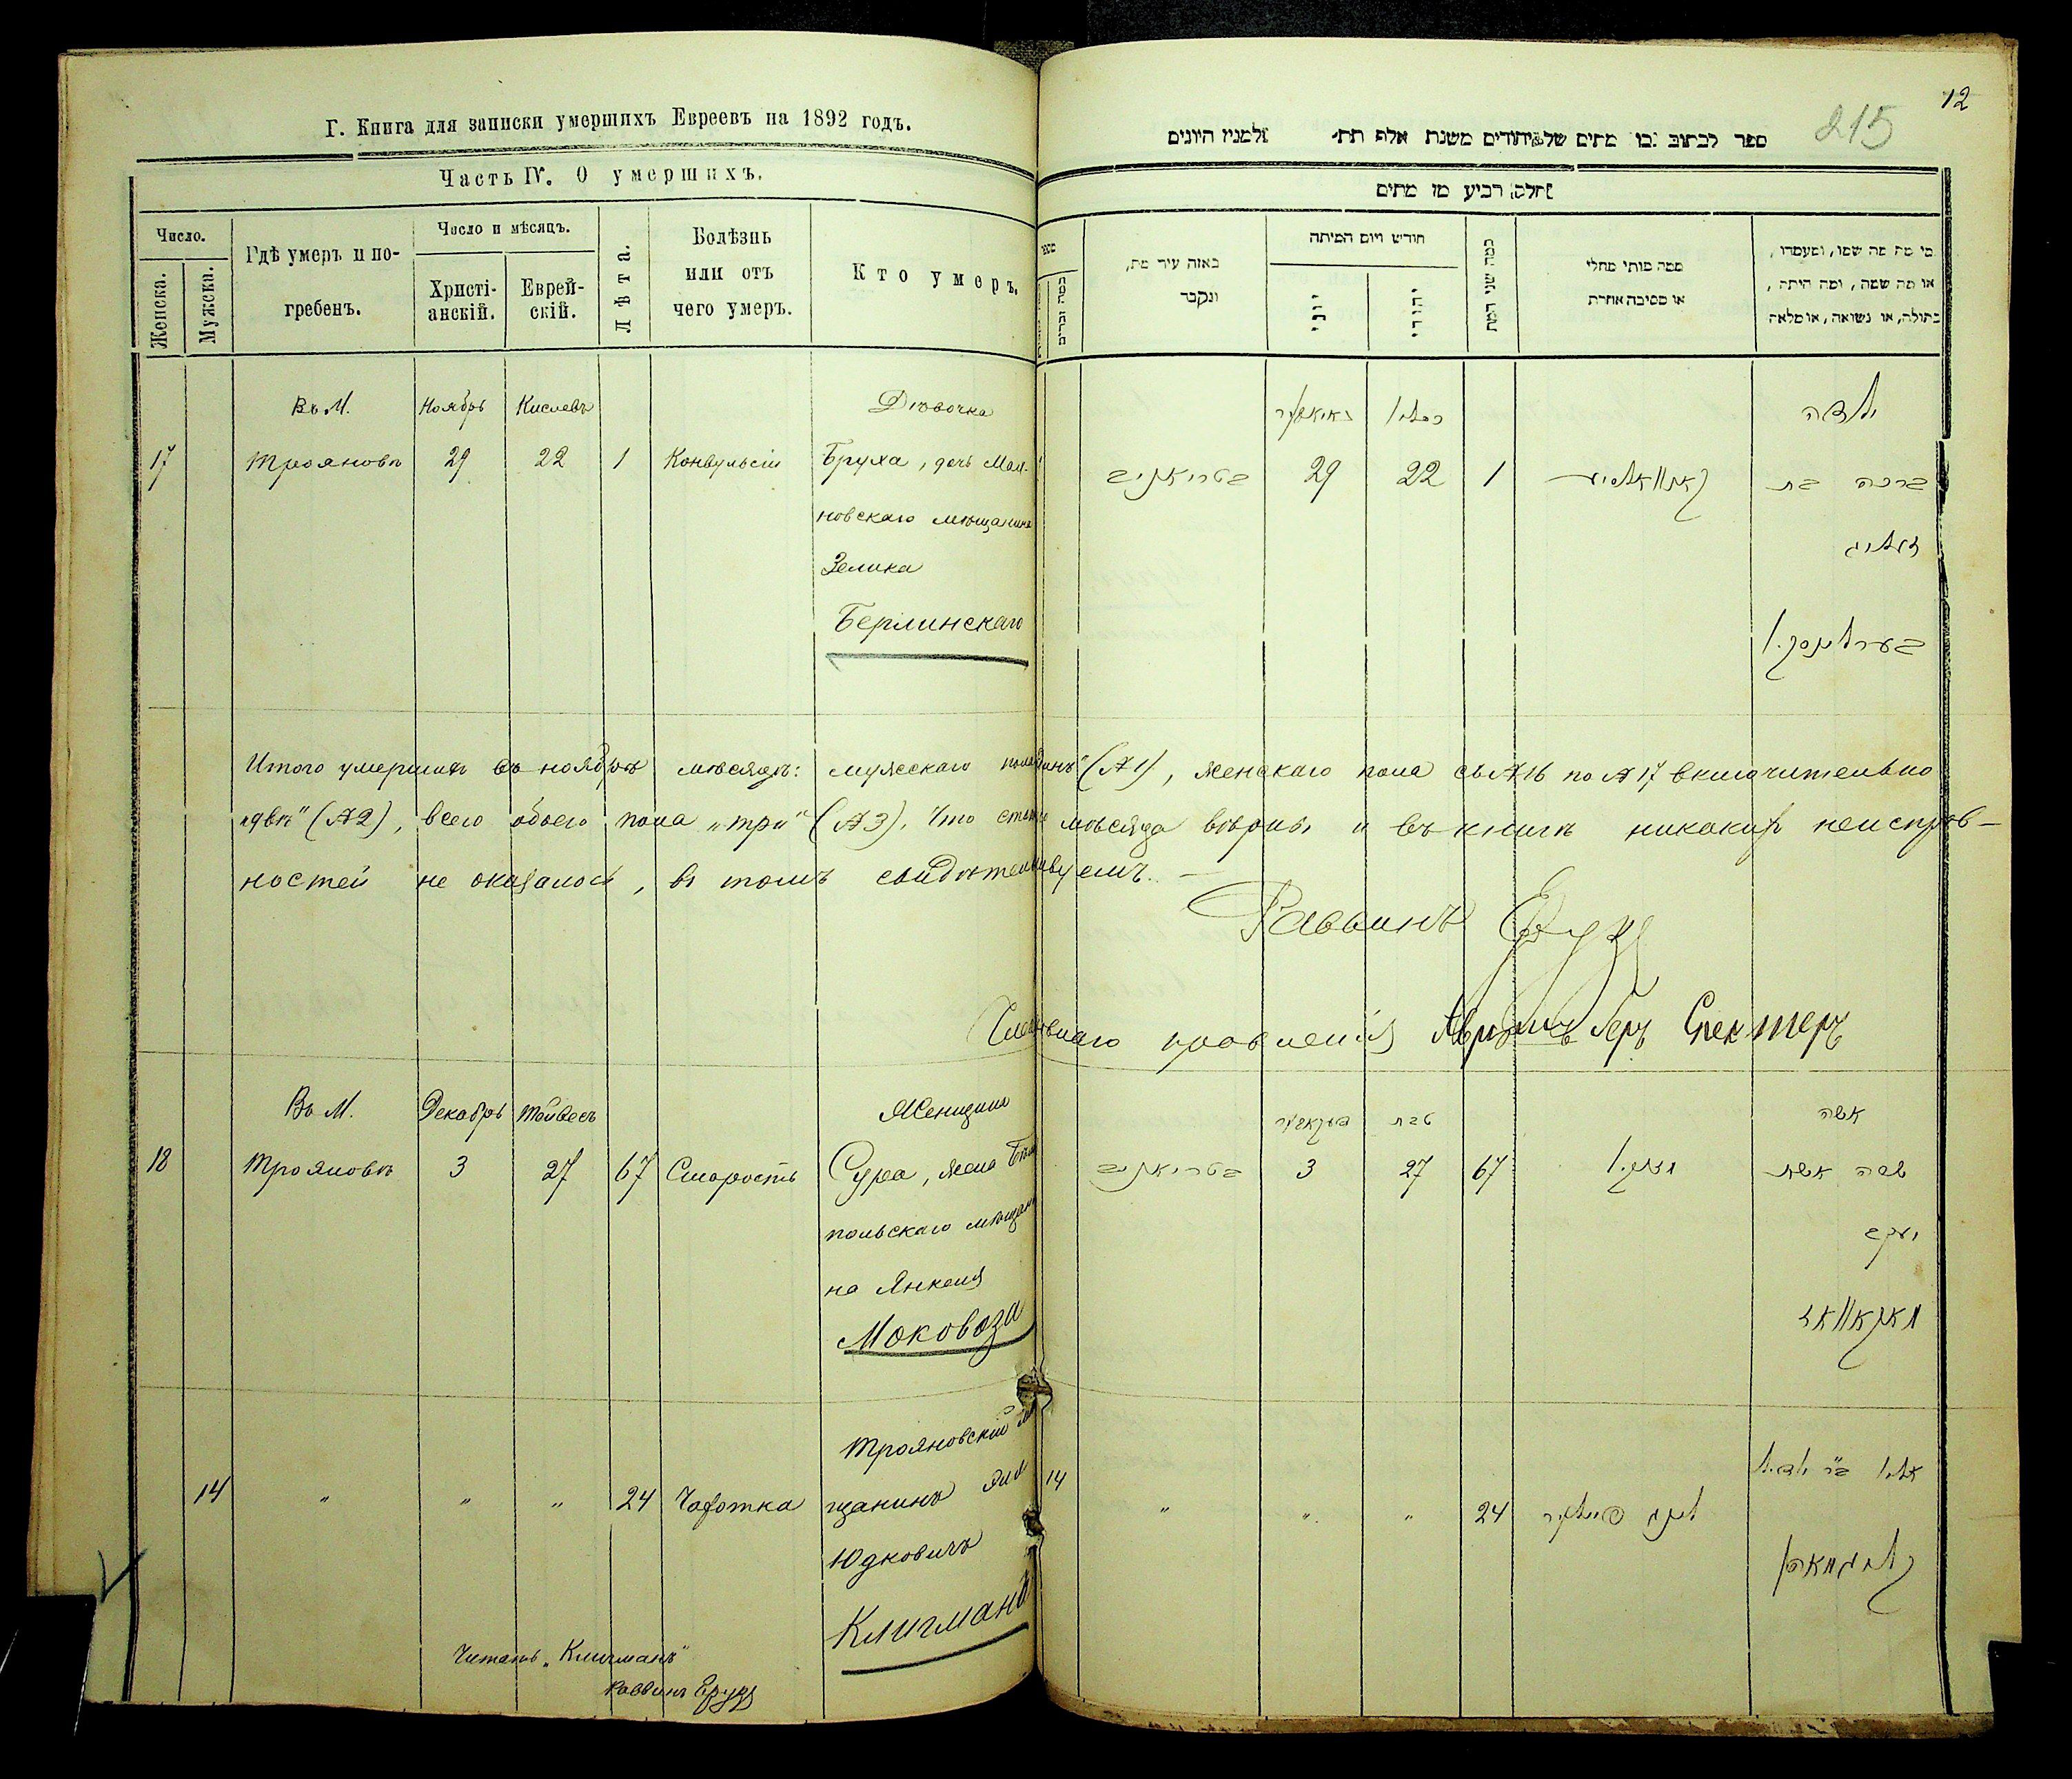 Г. Книга для записки умершихъ Евреевъ на 1892 годъ.
Часть IV. О умершихъ.
Число.
Женска.
Мужска.
Гдѣ умеръ и по-
гребенъ.
Число и мѣсяцъ.
Христі-
анскій.
Еврей-
скій.
Лѣта.
Болѣзнь
или отъ
чего умеръ.
Кто умеръ.
Въ М. Ноябрь Кислевъ Дѣвочка
17 Трояновѣ 29 22 1 Конвульсіи Бруха, дочь
новскаго мѣщанина
Зелика
Берлинскаго
Итого умершихъ въ ноябрѣ мѣсяцѣ: мужскаго пола „одинъ" (№1), женскаго пола съ №16 по №17 включительно
„двѣ" (№2), всего обоего пола „три" (№3). Что мѣсяца вѣрны и въ книгѣ никакихъ неисправ-
ностей не оказалось, въ томъ свидѣтельствуемъ.
Раввинъ
правленія Спектеръ
Въ М. Декабрь Тейвесъ Женщина
18 Трояновѣ 3 27 67 Старость Сура, жена
польскаго мѣщани
на Янкеля
Моковоза
Трояновскій мѣ
14 " " " 24 Чахотка щанинъ
Юдковичъ
Клигманъ
Читать „Клигманъ"
Раввинъ
12
215
ספר לכתוב בו מתים של יהודים משנת אלף תת׳ למנין היונים
חלק רביע מן מתים
באזה עיר מת,
ונקבר
חודש ויום המיתה
יוני
יהודי
כמה שני המת
ממה מותי מחלי
או מסיבה אחרת
מי מת מה שמו, ומעמדו,
או מה שמה, ומה היתה,
בתולה, או נשואה, או מלאה
נאיאבער כסליו ילדה
29 22 1 ברכה בת
זעליג
בערלינסקי
דעקאבער טבת אשה
3 27 67 זקנה שרה אשת
יעקב
מאקאוואז
14
" " " 24
קליגמאן